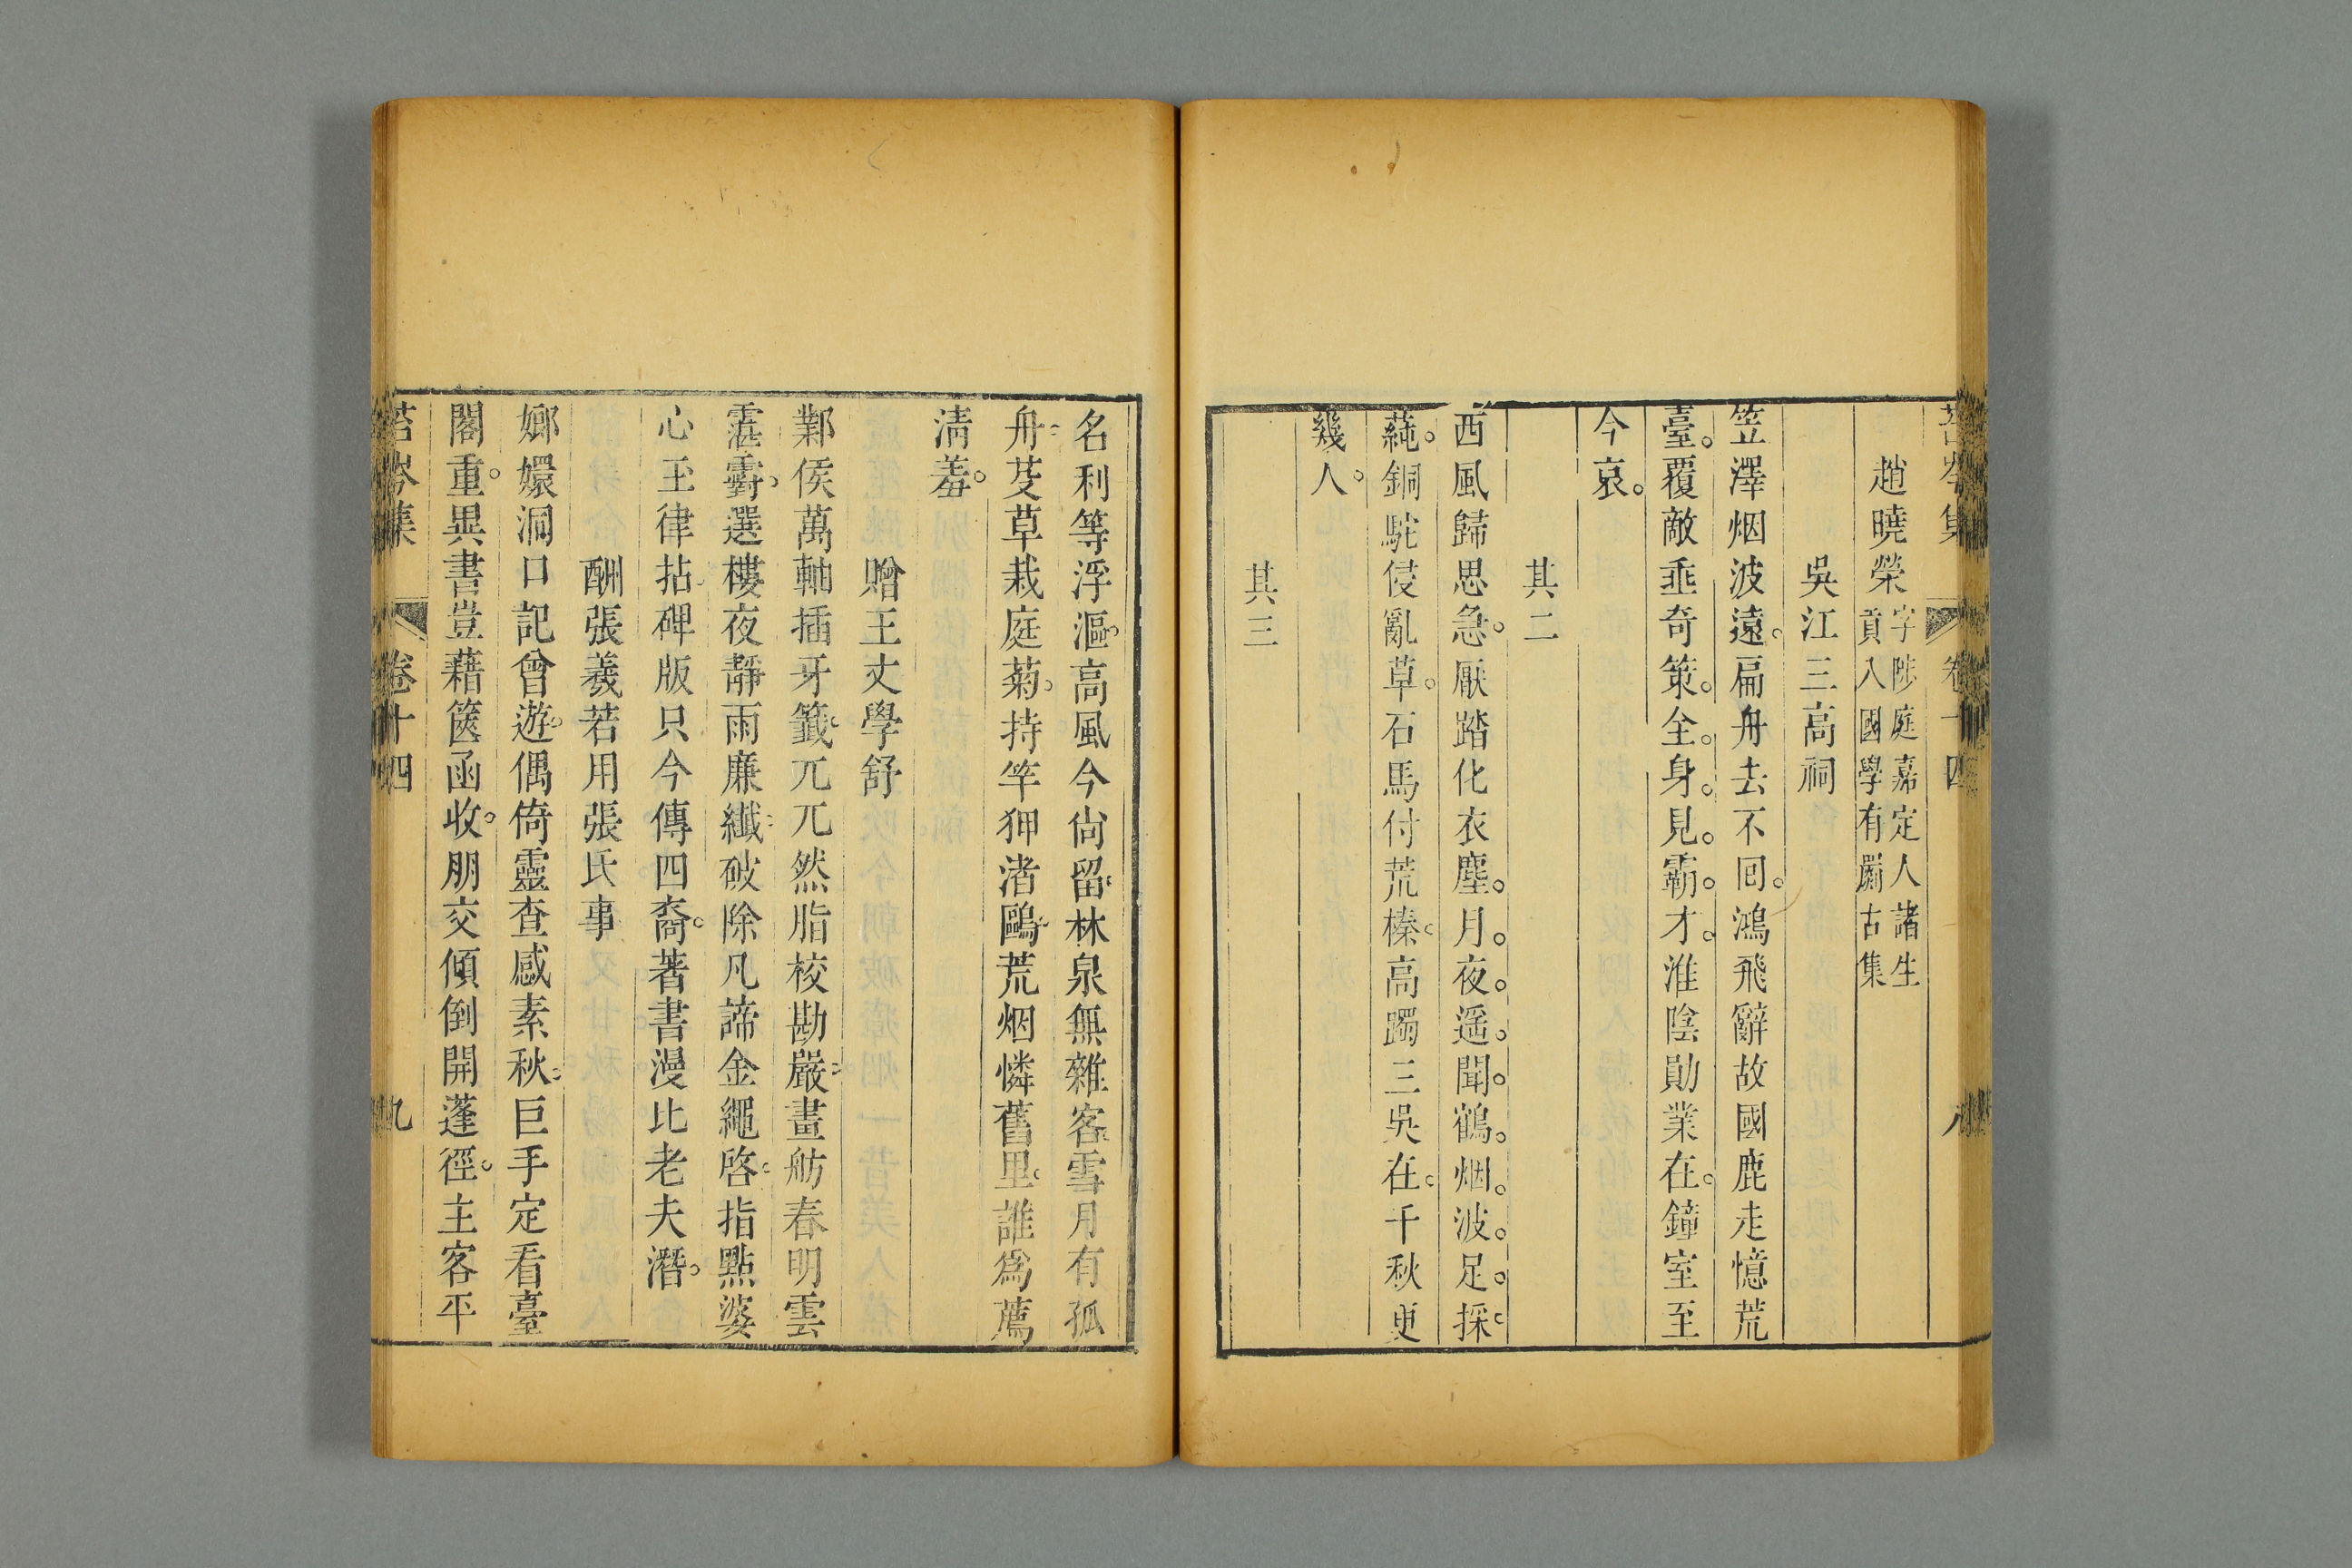 苔岑集　卷十四　八
趙曉榮　字陟庭嘉定人諸生
貢入國學有嚴古集
吳江三高祠
笠澤烟波遠。扁舟去不回。鴻飛辭故國鹿走憶荒
臺。覆敵乖奇策。全。身。見。霸。才。淮陰勛業在。鐘室至
今哀。
其二
西風歸思急。厭踏化衣塵。月。夜。遥。聞。鶴。烟。波。足。採。
蒓。銅駝侵亂草。石馬付荒榛。高躅三吳在。千秋更
幾人。
其三
名利等浮漚。高風今尙留。林泉無雜客雪月有孤
舟。芟草栽庭菊。持竿狎渚鷗。荒烟憐舊里。誰爲薦
淸羞。
贈王丈學舒
鄴侯萬軸插牙籤。兀兀然脂校勘嚴。畫舫春明雲
霮䨴。選樓夜靜雨廉纖。破除凡諦金繩啓。指點婆
心玉律拈。碑版只今傳四裔。著書漫比老夫潛。
酬張羲若用張氏事
嫏嬛洞口記曾遊。偶倚靈查感素秋。巨手定看臺
閣重。異書豈藉篋函收。朋交傾倒開蓬徑。主客平
苔岑集　卷十四　九